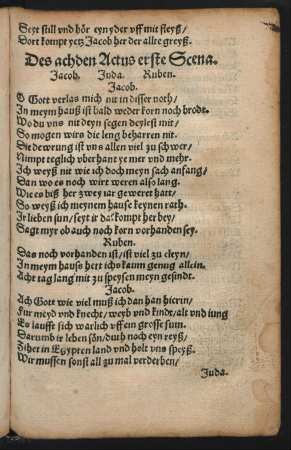 Seyt still vnd hör eyn yder vff mit fleyß/
Dort kompt yetz Jacob her der allte greyß.
Des achden Actus erste Scena.
Jacob. Juda. Ruben.
Jacob.
O Gott verlas mich nit in disser noth/
In meym hauß ist bald weder korn noch brodt.
Wo du vns nit deyn segen deyleßt mit/
So mogen wirs die leng beharren nit.
Die dewrung ist vns allen viel zu schwer/
Nimpt teglich vberhant ye mer vnd mehr.
Ich weyß nit wie ich doch meyn sach anfang/
Dan wo es noch wirt weren also lang.
Wie es biß her zwey iar geweret hatt/
So weyß ich meynem hause keynen rath.
Ir lieben sun/ seyt ir da? kompt her bey/
Sagt myr ob auch noch korn vorhanden sey.
Ruben.
Das noch vorhanden ist/ ist viel zu cleyn/
In meym hauß hett ichs kaum genug allein.
Acht tag lang mit zu speysen meyn gesindt.
Jacob.
Ach Gott wie viel muß ich dan han hierin/
Für meyd vnd knecht/ weyb vnd kindr/ alt vnd iung
Es laufft sich warlich vff ein grosse sum.
Darumb ir leben sön/ durh noch eyn reyß/
Zihet in Egypten land vnd holt vns speyß.
Wir mussen sonst all zu mal verderben/
Juda.